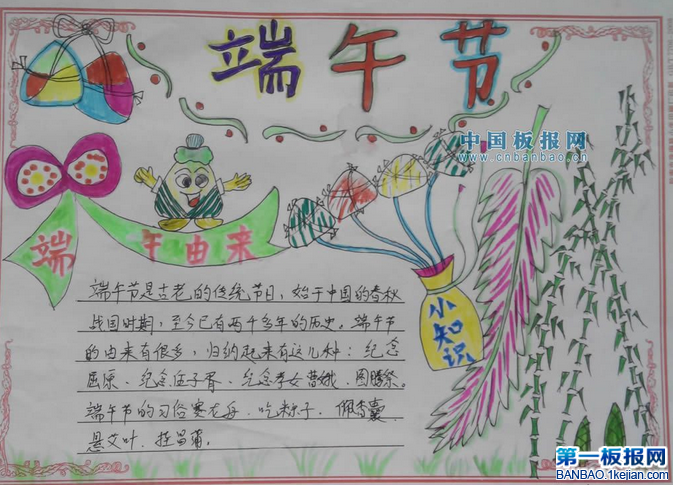 端午节
中国板报网
www.cnbanbao.cn
端午由来
小知识
端午节是古老的传统节日，始于中国的春秋
战国时期，至今已有两千多年的历史。端午节
的由来有很多，归纳起来有这几种：纪念
屈原、纪念伍子胥、纪念孝女曹娥、图腾祭。
端午节的习俗赛龙舟、吃粽子、佩香囊、
悬艾叶、挂菖蒲。
第一板报网
BANBAO.1kejian.com